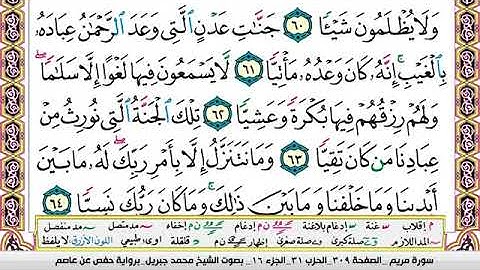 وَلَا يُظْلَمُونَ شَيْـًٔا ٦٠ جَنَّـٰتِ عَدْنٍ ٱلَّتِى وَعَدَ ٱلرَّحْمَـٰنُ عِبَادَهُۥ
بِٱلْغَيْبِ ۚ إِنَّهُۥ كَانَ وَعْدُهُۥ مَأْتِيًّا ٦١ لَّا يَسْمَعُونَ فِيهَا لَغْوًا إِلَّا سَلَـٰمًا ۖ
وَلَهُمْ رِزْقُهُمْ فِيهَا بُكْرَةً وَعَشِيًّا ٦٢ تِلْكَ ٱلْجَنَّةُ ٱلَّتِى نُورِثُ مِنْ
عِبَادِنَا مَن كَانَ تَقِيًّا ٦٣ وَمَا نَتَنَزَّلُ إِلَّا بِأَمْرِ رَبِّكَ ۖ لَهُۥ مَا بَيْنَ
أَيْدِينَا وَمَا خَلْفَنَا وَمَا بَيْنَ ذَٰلِكَ ۚ وَمَا كَانَ رَبُّكَ نَسِيًّا ٦٤
م إقلاب غنة إدغام بلاغنة إدغام إخفاء مد متصل مد منفصل
المد اللازم صلة كبرى صلة صغرى إظهار قلقلة أو، طبيعي اللون الأزرق لا يلفظ
سورة مريم _ الصفحة ٣٠٩ _ الحزب ٣١ _ الجزء ١٦ _ بصوت الشيخ محمد جبريل _ برواية حفص عن عاصم